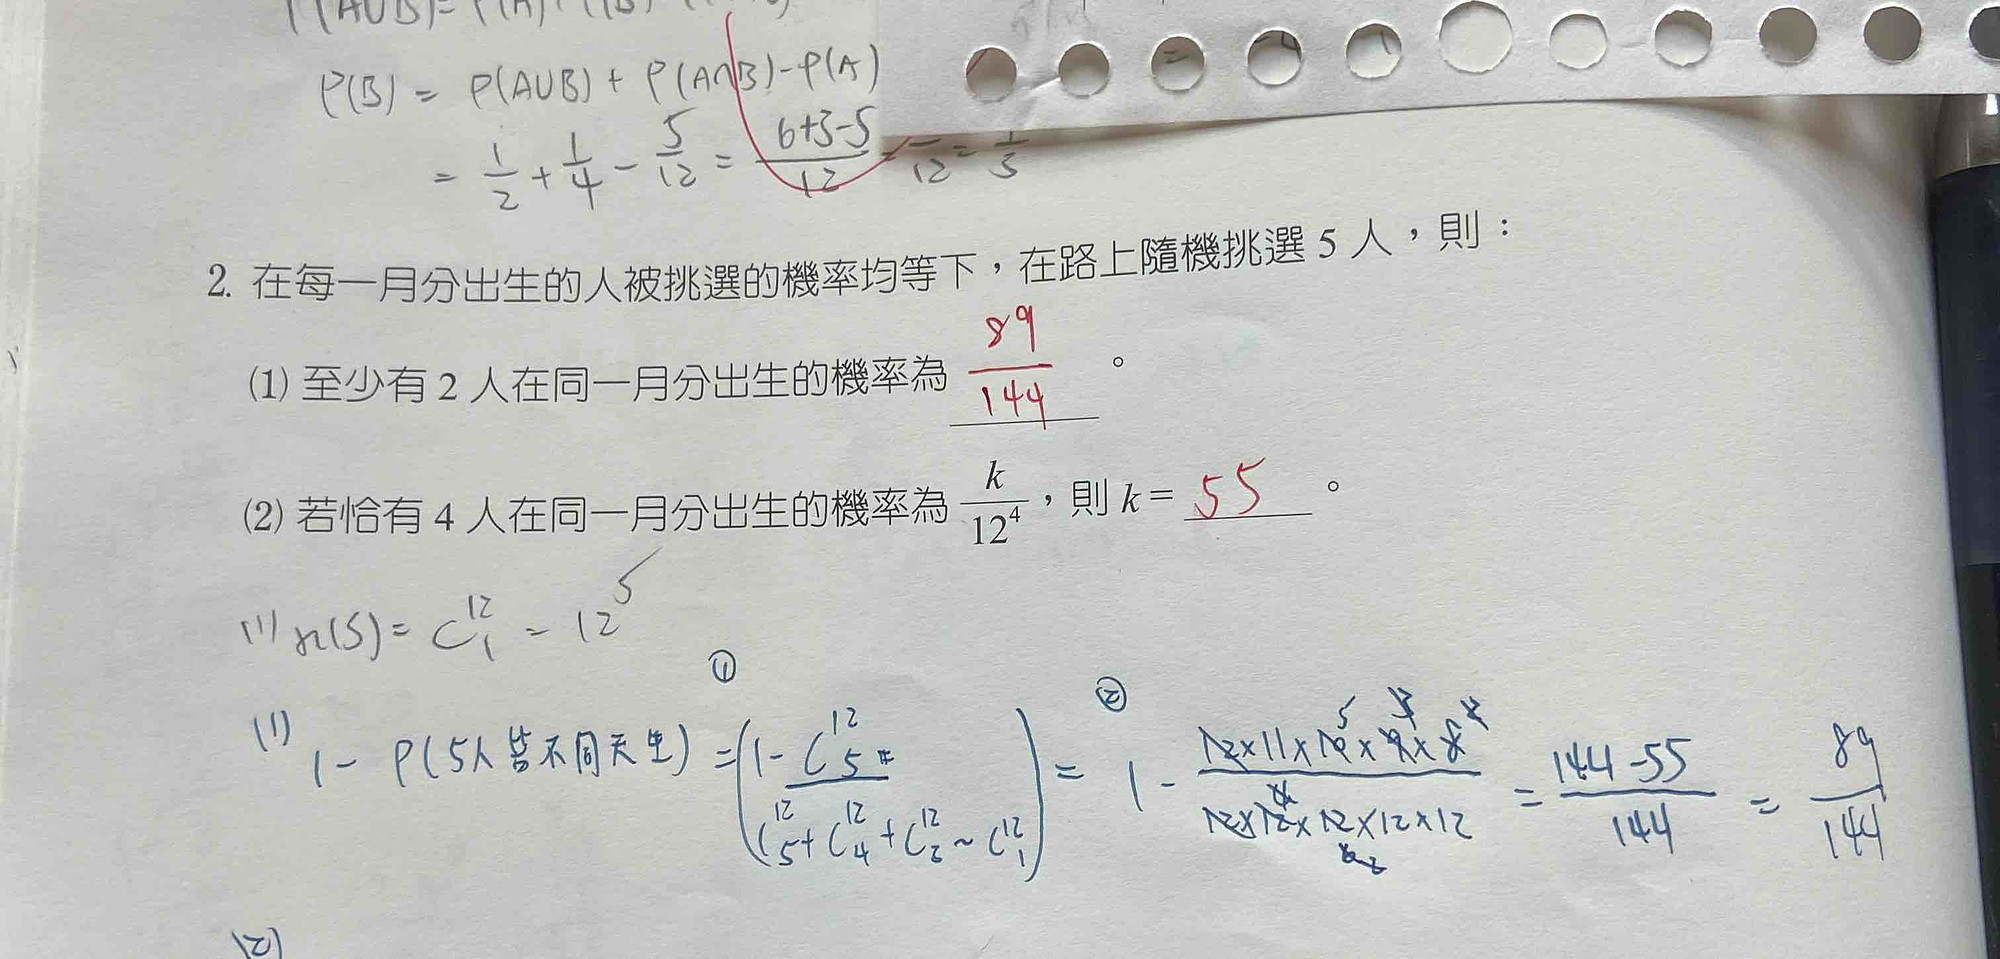 P(AUB)=P(A)+P(B)
P(B) = P(AUB) + P(A∩B)-P(A)
= 1/2 + 1/4 - 5/12 = 6+3-5/12 = /12 = 1/3
2. 在每一月分出生的人被挑選的機率均等下，在路上隨機挑選 5 人，則：
(1) 至少有 2 人在同一月分出生的機率為 89/144 。
(2) 若恰有 4 人在同一月分出生的機率為 k/12⁴，則 k= 55 。
(1) n(S)= C¹²₁ = 12⁵
① ②
(1) 1- P(5人皆不同天生) = (1- C¹²₅ / C¹²₅+C¹²₄+C¹²₃~C¹²₁) = 1 - 12×11×10×9×8/12×12×12×12×12 = 144-55/144 = 89/144
(2)